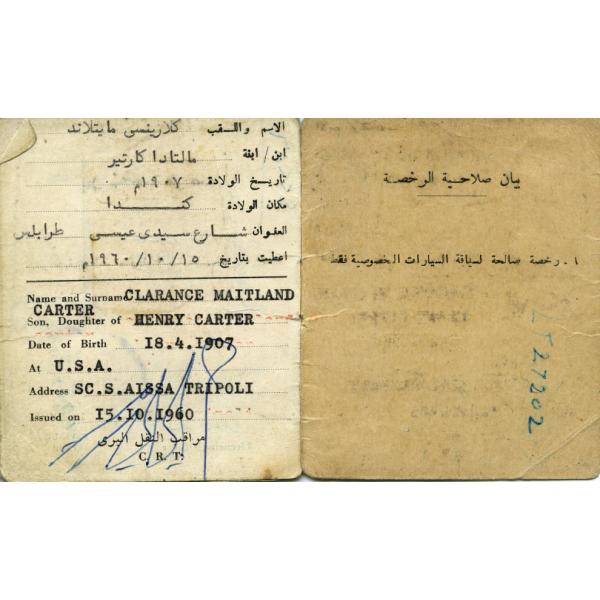 الاسم واللقب كلارينسى مايتلاند
ابن / ابنة مالتادا كارتير
تاريخ الولادة ١٩٠٧م
مكان الولادة كندا
العنوان شارع سيدى عيسى طرابلس
اعطيت بتاريخ ١٩٦٠/١٠/١٥م
Name and Surname CLARANCE MAITLAND
CARTER
Son, Doughter of HENRY CARTER
Date of Birth 18.4.1907
At U.S.A.
Address SC.S.AISSA TRIPOLI
Issued on 15.10.1960
مراقب النقل البرى
C. R. T.
بيان صلاحية الرخصة
١ ـ رخصة صالحة لسياقة السيارات الخصوصية فقط
27202